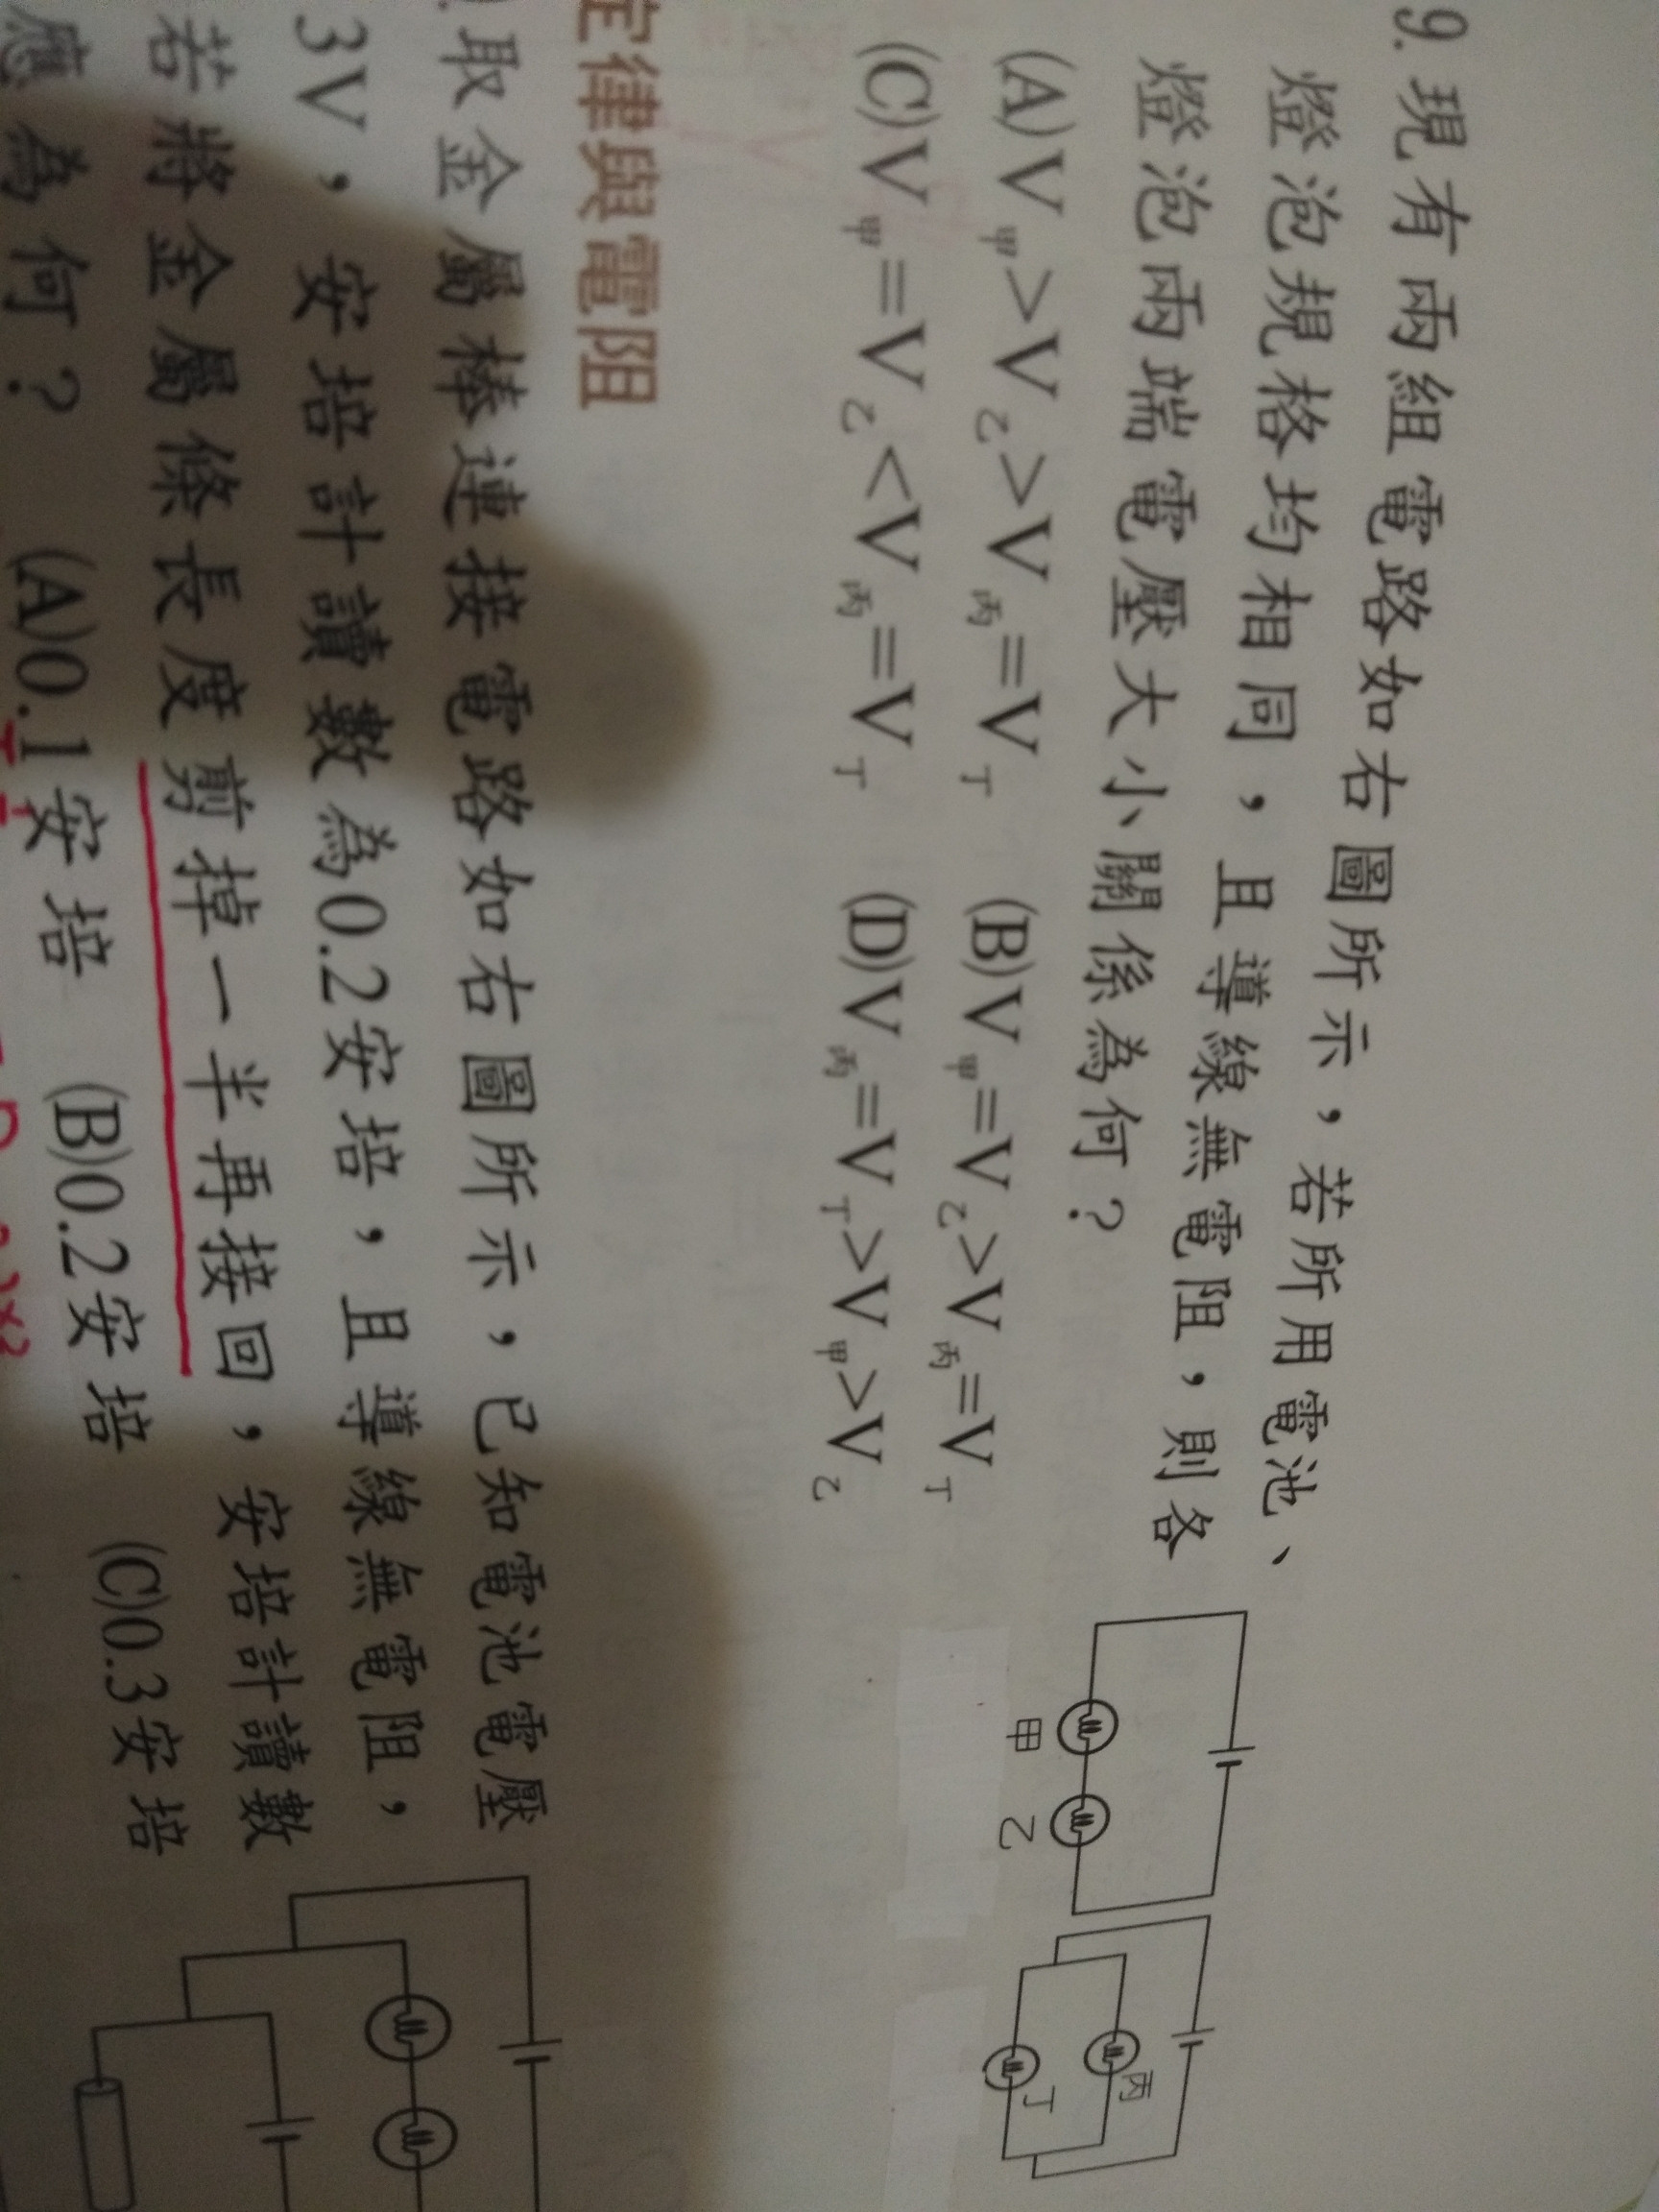 9. 現有兩組電路如右圖所示，若所用電池、
燈泡規格均相同，且導線無電阻，則各
燈泡兩端電壓大小關係為何？
(A)V甲>V乙>V丙=V丁 (B)V甲=V乙>V丙=V丁
(C)V甲=V乙<V丙=V丁 (D)V丙=V丁>V甲>V乙
甲 乙
丙
丁
定律與電阻
取金屬棒連接電路如右圖所示，已知電池電壓
3V，安培計讀數為0.2安培，且導線無電阻，
若將金屬條長度剪掉一半再接回，安培計讀數
應為何？ (A)0.1安培 (B)0.2安培 (C)0.3安培